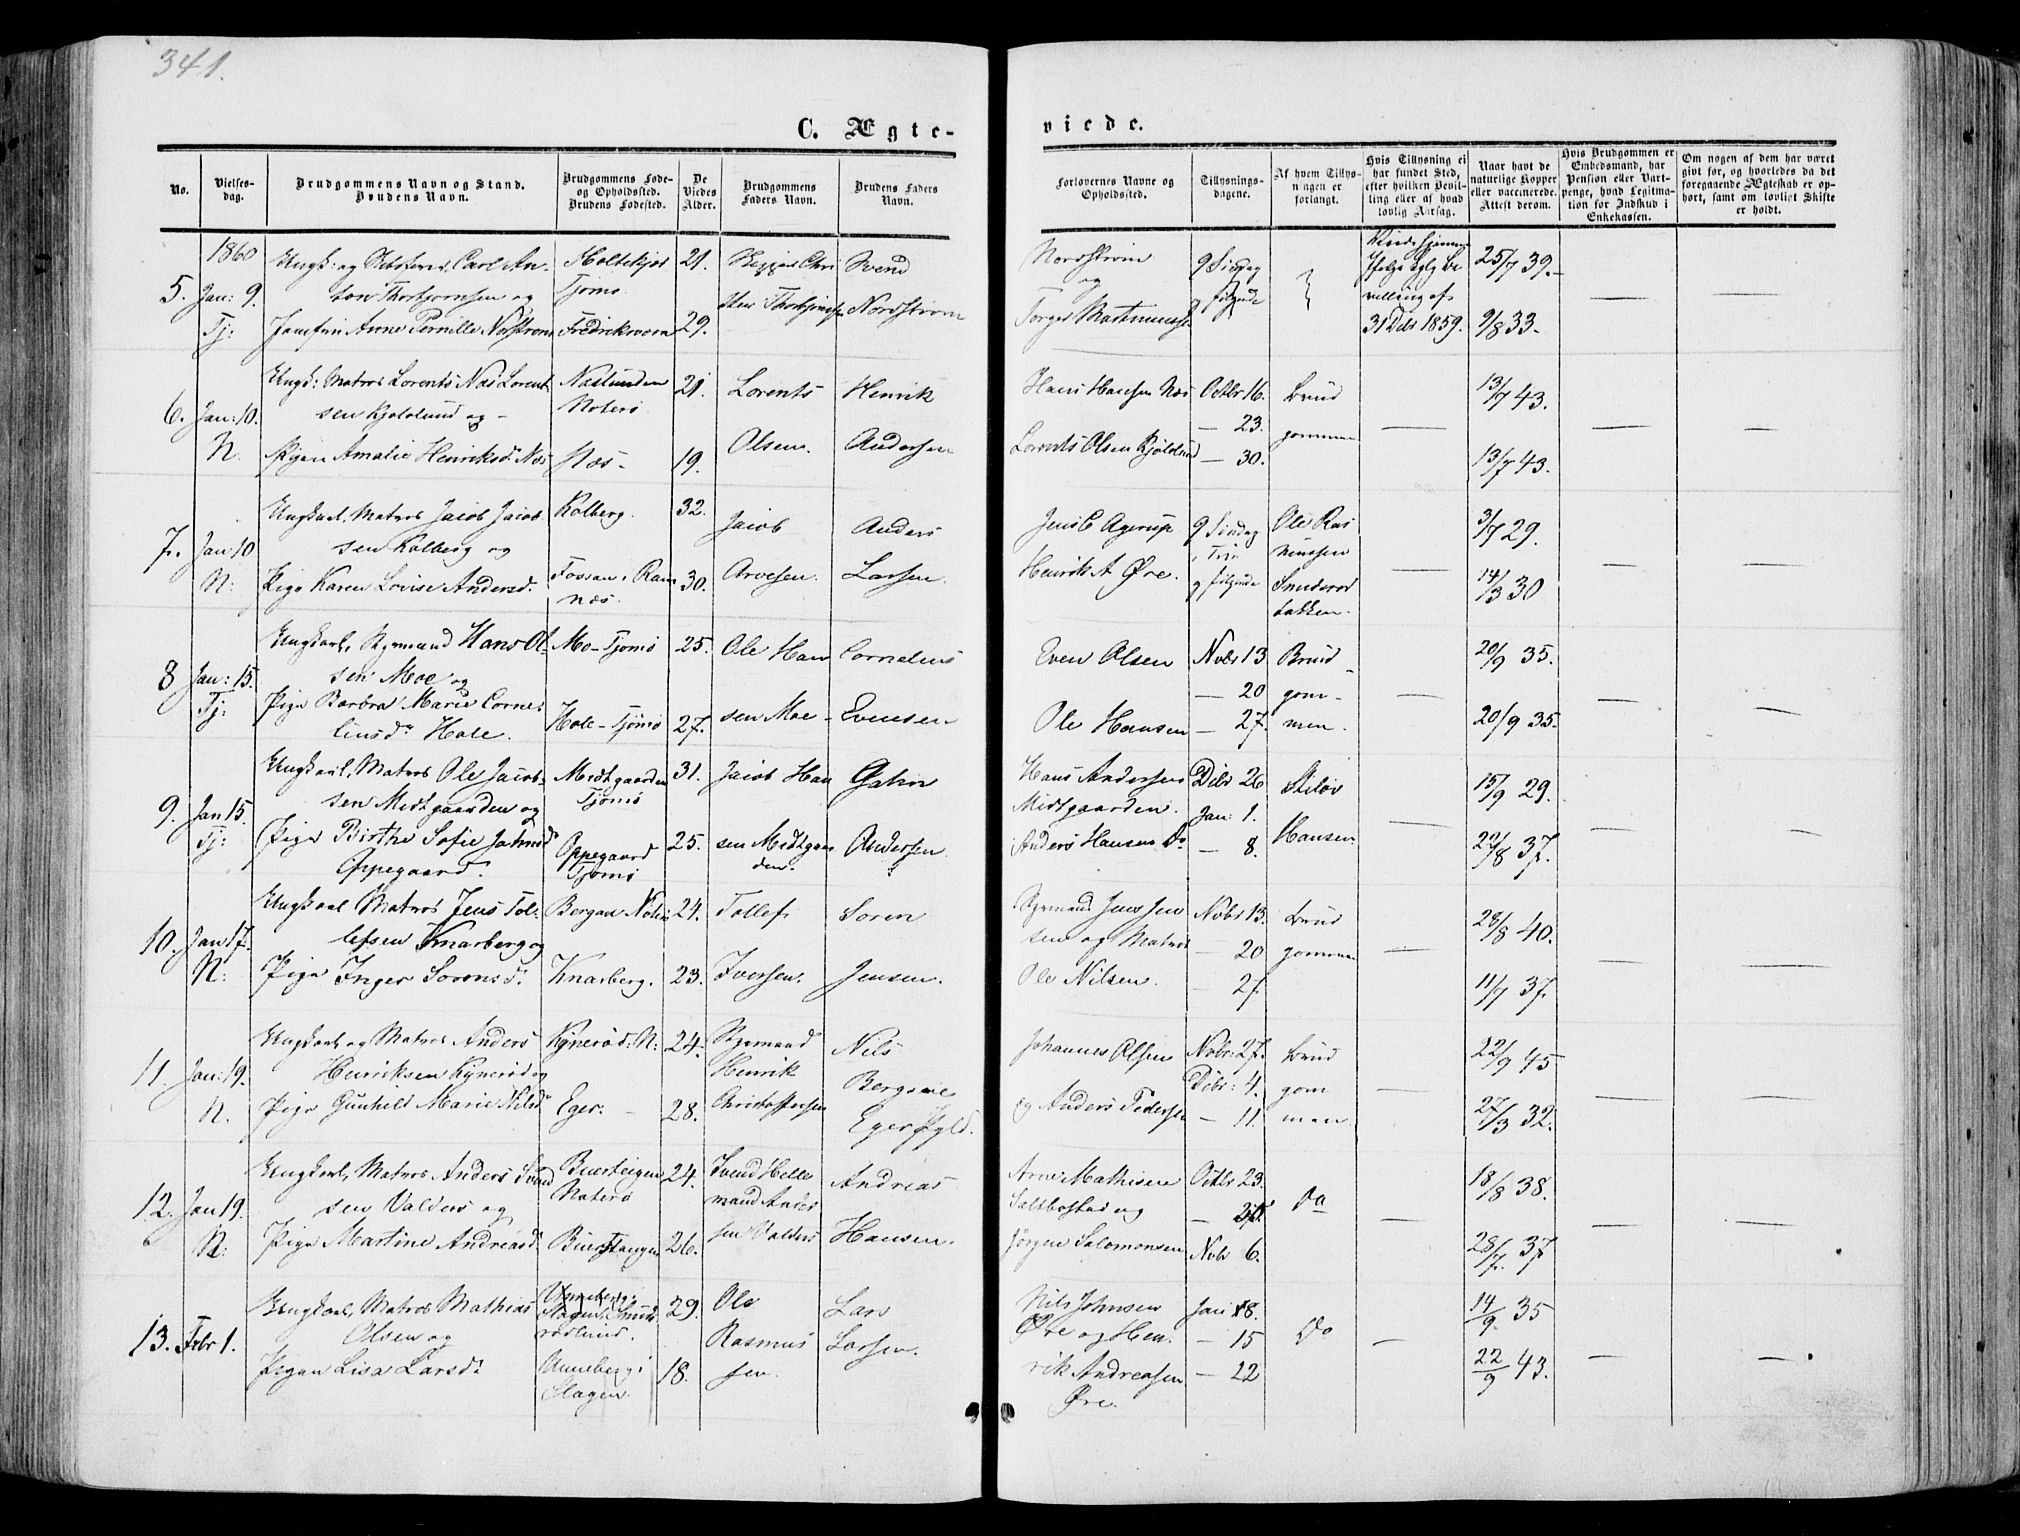 341.
C. Ægte-
viede.
No.
Vielses-
dag.
Brudgommens Navn og Stand.
Brudens Navn.
Brudgommens Føde-
og Opholdssted.
Brudens Fødested.
De
Viedes
Alder.
Brudgommens
Faders Navn.
Brudens Faders
Navn.
Forlovernes Navne og
Opholdssted.
Tillysnings-
dagene.
Af hvem Tillys-
ningen er
forlangt.
Hvis Tillysning ei
har fundet Sted,
efter hvilken Bevil-
ling eller af hvad
lovlig Aarsag.
Naar havt de
naturlige Kopper
eller vaccinerede.
Attest derom.
Hvis Brudgommen er
Embedsmand, har
Pension eller Vart-
penge, hvad Legitima-
tion for Indskud i
Enkekassen.
Om nogen af dem har været
givt før, og hvorledes da det
foregaaende Ægteskab er op-
hørt, samt om lovligt Skifte
er holdt.
1860
5. Jan: 9.
Tj:
Ungk: og Carl An-
ton Thorbjørnsen og
Jomfru Anne Pernille Nordstrøm
Holtekjær
Tjømø
Fredriksværn
21.
29.
Chri
sten Thorbjørnsen
Svend
Nordstrøm
Nordstrøm
og
Torger
9 Sindag
følgende
ifølge kglg Be
villing af
31 Debr 1859.
25/7 39.
9/8 33.
6. Jan: 10.
N.
Ungk: Matros Lorents Næs Lorent
sen Kjøldlund og
Pigen Amalie Henriksd. Næs
Næslunden
Nøterø
Næs
21.
19.
Lorents
Olsen.
Henrik
Andersen
Hans Hansen Næs
Lorents Olsen Kjøldlund
Octbr 16.
— 23.
— 30.
Brud
gommen
13/7 43.
13/7 43.
7. Jan 10
N:
Ungkarl, Matros Jacob Jacob
sen Kolberg og
Pige Karen Lovise Andersd.
Kolberg.
Fossan i Ram
næs.
32.
30.
Jacob
Arvesen.
Anders
Larsen.
Jens C Agerup
Henrik A Øre.
9 Sindag
Trin
g følgende
Ole Ras
mussen
Smiderød
bakken.
3/7 29.
14/3 30
8 Jan: 15.
Tj:
Ungkarl, Styrmand Hans Ol-
sen Moe og
Pige Barbra Marie Corne-
liusd. Hole.
Mo - Tjømø
Hole - Tjømø
25.
27.
Ole Han
sen Moe -
Cornelius
Evensen
Even Olsen
Ole Hansen
Novbr 13
— 20
— 27.
Brud
gom-
men.
20/9 35.
20/9 35.
9. Jan 15.
Tj:
Ungkarl, Matros Ole Jacob-
sen Midtgaarden og
Pige Birthe Sofie Jahnsd.
Oppegaard.
Midtgaarden
Tjømø
Oppegaard
Tjømø
31.
25.
Jacob Han
sen Midtgaar
den.
Jahn
Andersen
Hans Andersen
Midtgaarden.
Anders Hansen Do
Debr 26
Jan: 1.
— 8.
Hansen
15/9 29.
22/8 37.
10. Jan 17.
N:
Ungkarl Matros Jens Tol-
lefsen Knarberg og
Pige Inger Sørensd.
Bergan Nøterø
Knarberg.
24.
23.
Tollef
Iversen.
Søren
Jensen.
Styrmand Jens Jen
sen og Matros
Ole Nilsen.
Novbr 13.
— 20
— 27.
Brud
gommen
28/8 40.
11/7 37.
11. Jan: 19.
N.
Ungkarl og Matros Anders
Henriksen Kynerød og
Pige Gunhild Marie Nilsd.
Kynerød: N:
Eger: -
24.
28.
Styrmand
Henrik
Christoffersen
Nils
Bergsvie
Eger
Johannes Olsen
og Anders Pedersen
Novbr: 27.
Debr: 4.
— 11.
Brud
gom
men
22/9 45
27/3 32.
12. Jan 19.
N:
Ungkarl, Matros Anders Svend
sen Valders og
Pige Martine Andreasd.
Buerstangen
Nøterø
Buerstangen
24.
26.
Svend Helle
mand Anders
sen Valders
Andreas
Hansen.
Arne Mathisen
Saltbostad og
Jørgen Salomonsen
Octbr 23.
— 30.
Novbr 6.
Do
18/8 38.
28/7. 37
13. Febr 1.
Ungkarl, Matros Mathias
Olsen og
Pigen Lisa Larsd.
Slagen, Smid
rødlund.
Unneberg i
Slagen.
29.
18.
Ole
Rasmus
sen.
Lars
Larsen.
Nils Johnsen
Øre og Hen.
rik Andreasen
Øre.
Jan 8.
— 15
— 22
Do
14/9. 35
22/9 43.